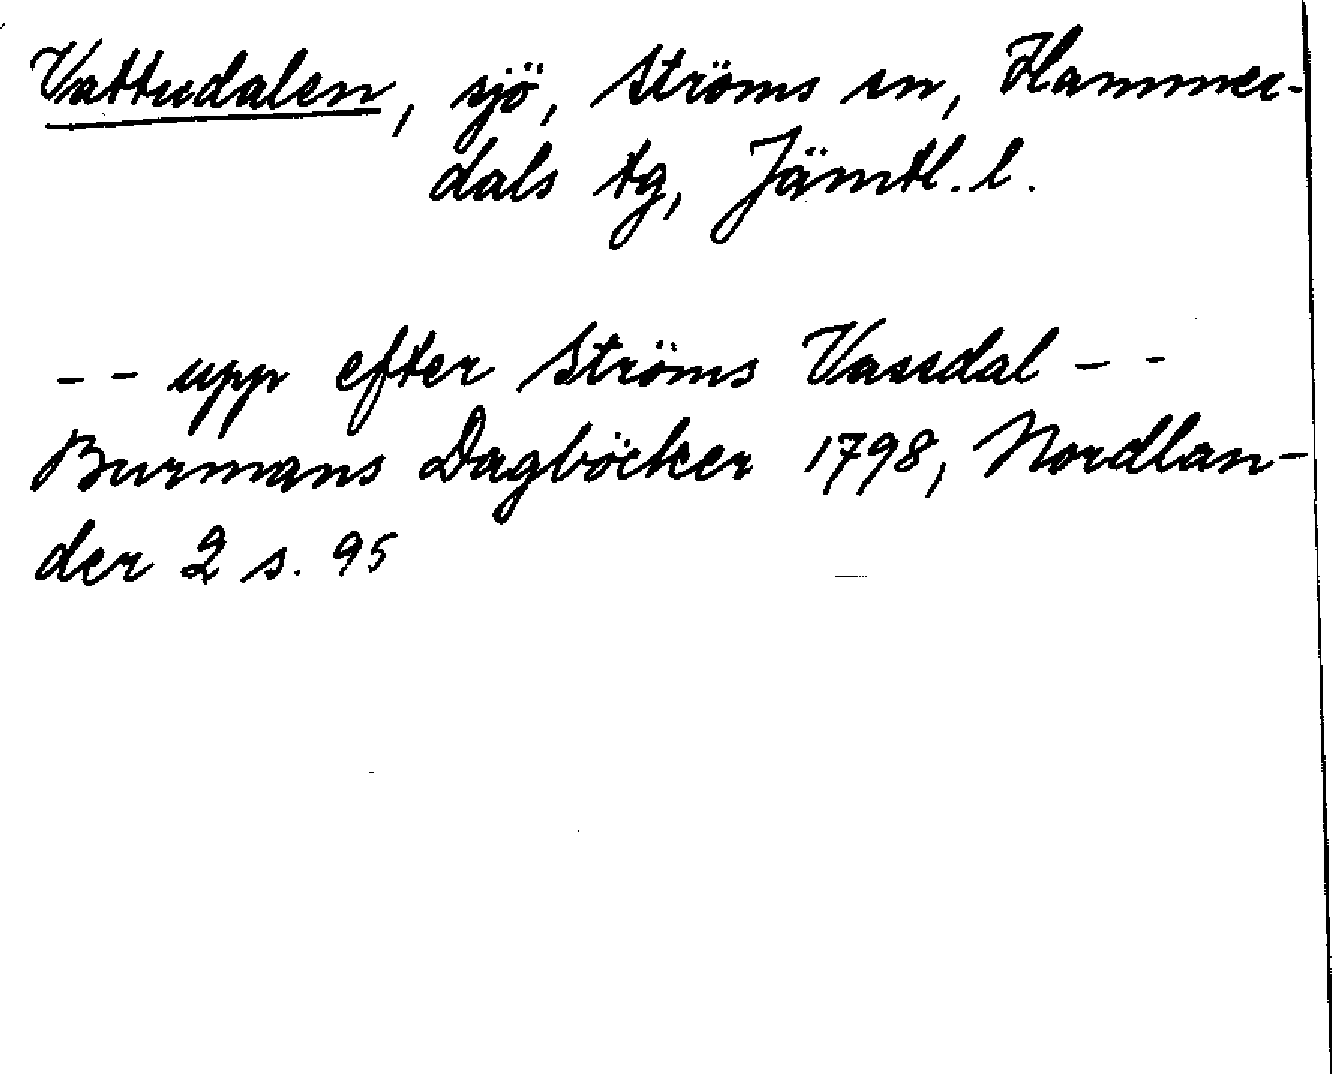 Vattudalen, sjö, Ströms sn, Hammer-
dals tg, Jämtl. l.
- - upp efter Ströms Vassdal - -
Burmans Dagböcker 1798, Nordlan-
der 2 s. 95